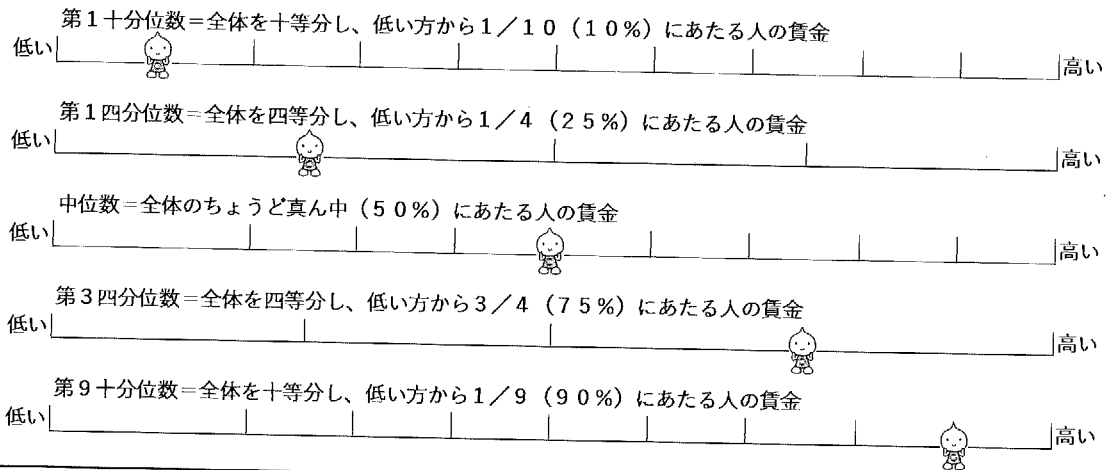 第1十分位数=全体を十等分し、低い方から1/10(10%)にあたる人の賃金
低い
高い
第1四分位数=全体を四等分し、低い方から1/4(25%)にあたる人の賃金
低い
高い
中位数=全体のちょうど真ん中(50%)にあたる人の賃金
低い
高い
第3四分位数=全体を四等分し、低い方から3/4(75%)にあたる人の賃金
低い
高い
第9十分位数=全体を十等分し、低い方から1/9(90%)にあたる人の賃金
低い
高い